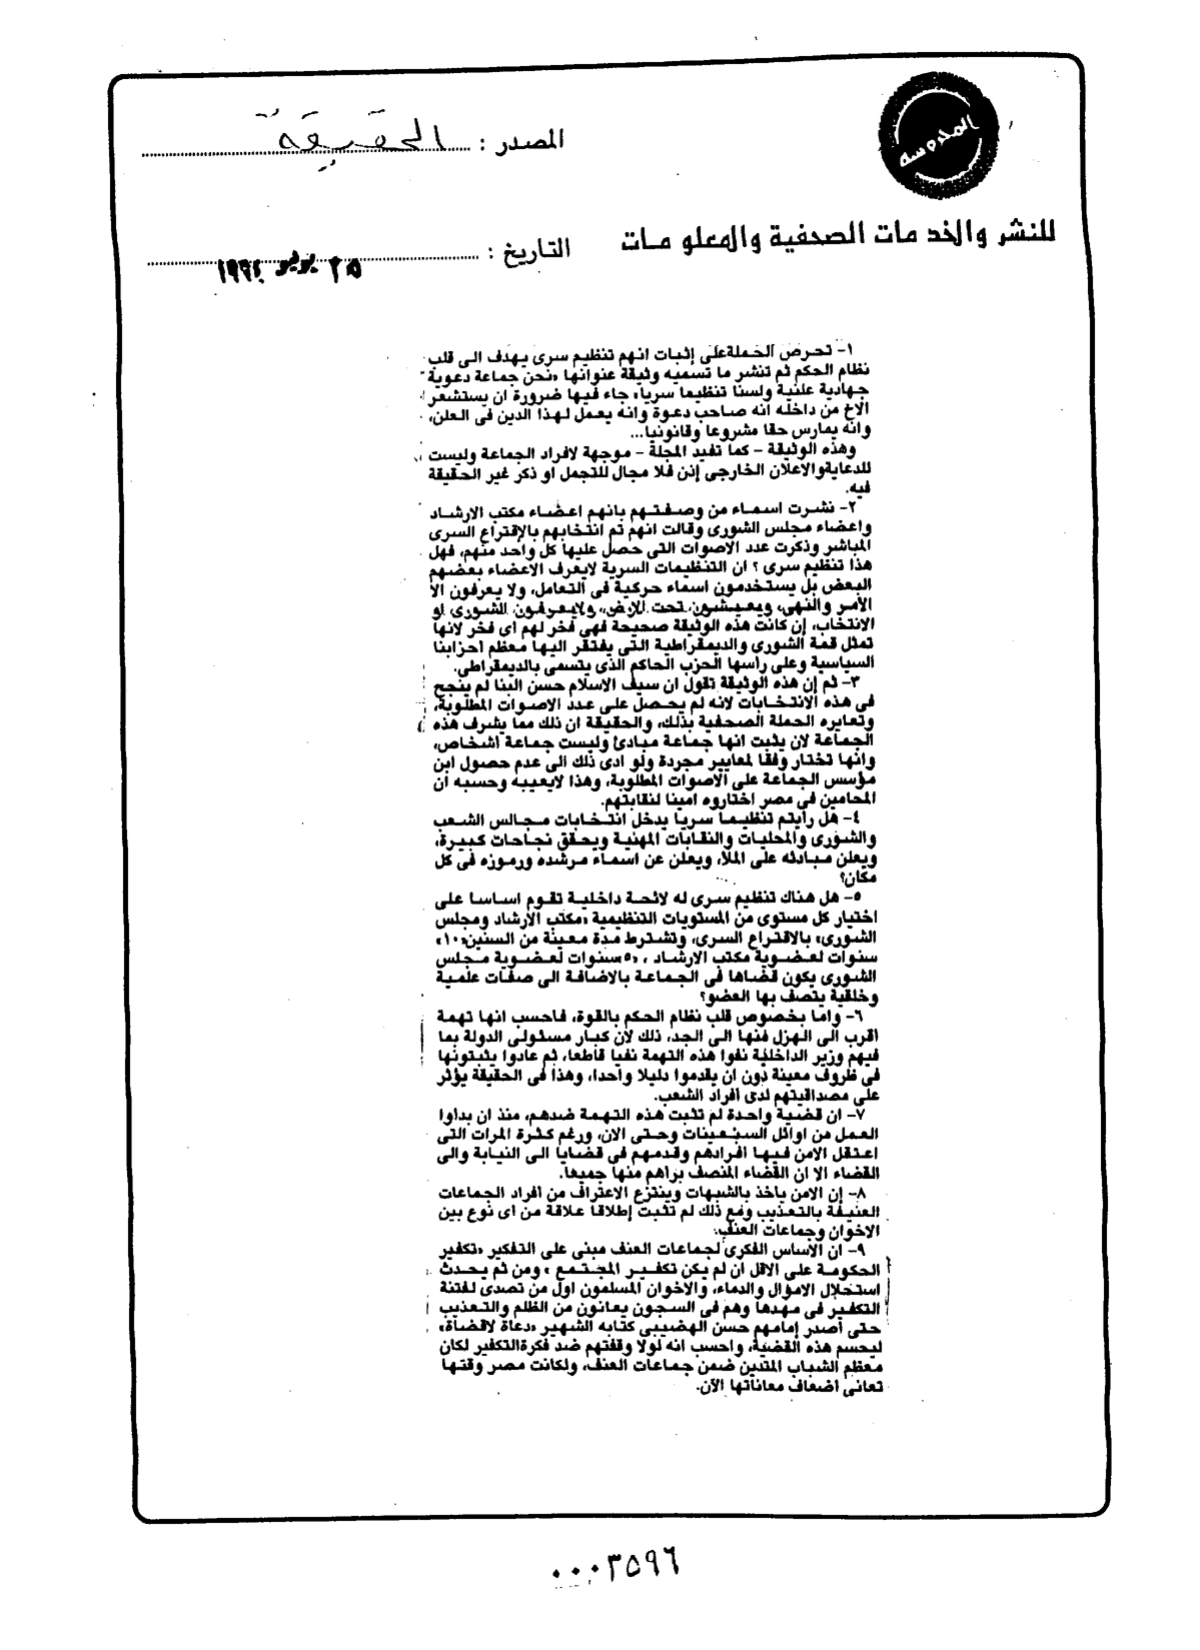 المحروسة
المصدر : الحقيقة
للنشر والخدمات الصحفية والمعلومات
التاريخ : ٢٥ يونيو
١- تحرص الحملة على إثبات انهم تنظيم سرى يهدف الى قلب
نظام الحكم ثم تنشر ما تسميه وثيقة عنوانها «نحن جماعة دعوية
جهادية علنية ولسنا تنظيما سريا» جاء فيها ضرورة ان يستشعر
الاخ من داخله انه صاحب دعوة وانه يعمل لهذا الدين فى العلن،
وانه يمارس حقا مشروعا وقانونيا...
وهذه الوثيقة - كما تفيد المجلة - موجهة لافراد الجماعة وليست
للدعاية والاعلان الخارجى إذن فلا مجال للتجمل او ذكر غير الحقيقة
فيه.
٢- نشرت اسماء من وصفتهم بانهم اعضاء مكتب الارشاد
واعضاء مجلس الشورى وقالت انهم تم انتخابهم بالإقتراع السرى
المباشر وذكرت عدد الاصوات التى حصل عليها كل واحد منهم، فهل
هذا تنظيم سرى ؟ ان التنظيمات السرية لايعرف الاعضاء بعضهم
البعض بل يستخدمون اسماء حركية فى التعامل، ولا يعرفون الا
الأمر والنهى، ويعيشون تحت الارض، ولايعرفون الشورى او
الانتخاب، إن كانت هذه الوثيقة صحيحة فهى فخر لهم اى فخر لانها
تمثل قمة الشورى والديمقراطية التى يفتقر اليها معظم احزابنا
السياسية وعلى راسها الحزب الحاكم الذى يتسمى بالديمقراطى.
٣- ثم إن هذه الوثيقة تقول ان سيف الاسلام حسن البنا لم ينجح
فى هذه الانتخابات لانه لم يحصل على عدد الاصوات المطلوبة،
وتعايره الحملة الصحفية بذلك، والحقيقة ان ذلك مما يشرف هذه
الجماعة لان يثبت انها جماعة مبادئ وليست جماعة اشخاص،
وانها تختار وفقا لمعايير مجردة ولو ادى ذلك الى عدم حصول ابن
مؤسس الجماعة على الاصوات المطلوبة، وهذا لايعيبه وحسبه ان
المحامين فى مصر اختاروه امينا لنقابتهم.
٤- هل رأيتم تنظيما سريا يدخل انتخابات مجالس الشعب
والشورى والمحليات والنقابات المهنية ويحقق نجاحات كبيرة،
ويعلن مبادئه على الملا، ويعلن عن اسماء مرشده ورموزه فى كل
مكان؟
٥- هل هناك تنظيم سرى له لائحة داخلية تقوم اساسا على
اختيار كل مستوى من المستويات التنظيمية «مكتب الارشاد ومجلس
الشورى» بالاقتراع السرى، وتشترط مدة معينة من السنين«١٠»
سنوات لعضوية مكتب الارشاد ، «٥»سنوات لعضوية مجلس
الشورى يكون قضاها فى الجماعة بالاضافة الى صفات علمية
وخلقية يتصف بها العضو؟
٦- واما بخصوص قلب نظام الحكم بالقوة، فاحسب انها تهمة
اقرب الى الهزل فنها الى الجد، ذلك لان كبار مسئولى الدولة بما
فيهم وزير الداخلية نفوا هذه التهمة نفيا قاطعا، ثم عادوا يثبتونها
فى ظروف معينة دون ان يقدموا دليلا واحدا، وهذا فى الحقيقة يؤثر
على مصداقيتهم لدى أفراد الشعب.
٧- ان قضية واحدة لم تثبت هذه التهمة ضدهم، منذ ان بداوا
العمل من اوائل السبعينات وحتى الان، ورغم كثرة المرات التى
اعتقل الامن فيها افرادهم وقدمهم فى قضايا الى النيابة والى
القضاء الا ان القضاء المنصف براهم منها جميعا.
٨- إن الامن ياخذ بالشبهات وينتزع الاعتراف من افراد الجماعات
العنيفة بالتعذيب ومع ذلك لم تثبت إطلاقا علاقة من اى نوع بين
الاخوان وجماعات العنف.
٩- ان الأساس الفكرى لجماعات العنف مبنى على التفكير «تكفير
الحكومة على الاقل ان لم يكن تكفير المجتمع » ومن ثم يحدث
استحلال الاموال والدماء، والاخوان المسلمون اول من تصدى لفتنة
التكفير فى مهدها وهم فى السجون يعانون من الظلم والتعذيب
حتى أصدر إمامهم حسن الهضيبى كتابه الشهير «دعاة لاقضاة»
ليحسم هذه القضية، واحسب انه لولا وقفتهم ضد فكرةالتكفير لكان
معظم الشباب المتدين ضمن جماعات العنف، ولكانت مصر وقتها
تعانى اضعاف معاناتها الآن.
٠٠٠٣٥٩٦